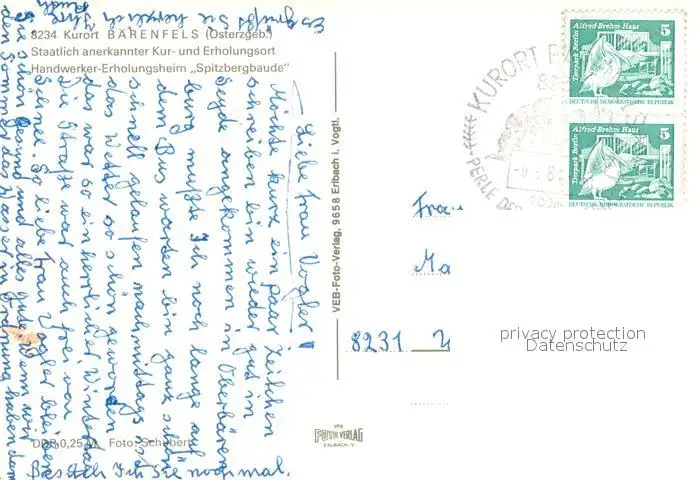 8234 Kurort BÄRENFELS (Osterzgeb.)
Staatlich anerkannter Kur- und Erholungsort
Handwerker-Erholungsheim „Spitzbergbaude“
Liebe Frau Vogler!
Möchte kurz ein paar Zeilchen
schreiben bin wieder gut in
angekommen in Oberbären
burg mußte ich noch lange auf
dem Bus warten bin ganz schön
schnell gelaufen nachmittags ist
das Wetter so schön geworden
das war so ein herrlicher Wintertag
Die Straße war auch frei von
Schnee. So liebe Frau Vogler bleiben
Sie schön gesund und alles Gute wenn wir
den Sommer das Wasser in Ordnung haben dann
Besuch ich Sie noch mal.
Es grüßt Sie herzlich Ihre
DDR 0,25 M Foto: Schubert
VEB-Foto-Verlag, 9658 Erlbach i. Vogtl.
VEB
FOTO VERLAG
ERLBACH·V.
KURORT
PERLE DES
Alfred-Brehm-Haus
Tierpark Berlin
5
DEUTSCHE DEMOKRATISCHE REPUBLIK
Alfred-Brehm-Haus
Tierpark Berlin
5
DEUTSCHE DEMOKRATISCHE REPUBLIK
Frau
Ma
8231
privacy protection
Datenschutz